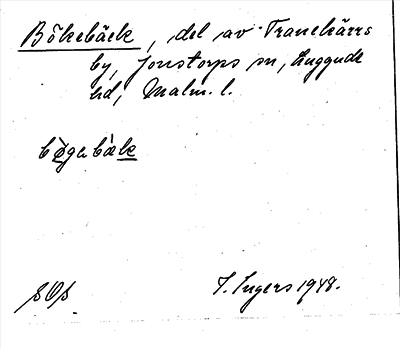 Bökebäck, del av Tranekärrs
by, Jonstorps sn, Luggude
hd, Malm. l.
bø̀gəbæk
SOs
I. Ingers 1948.